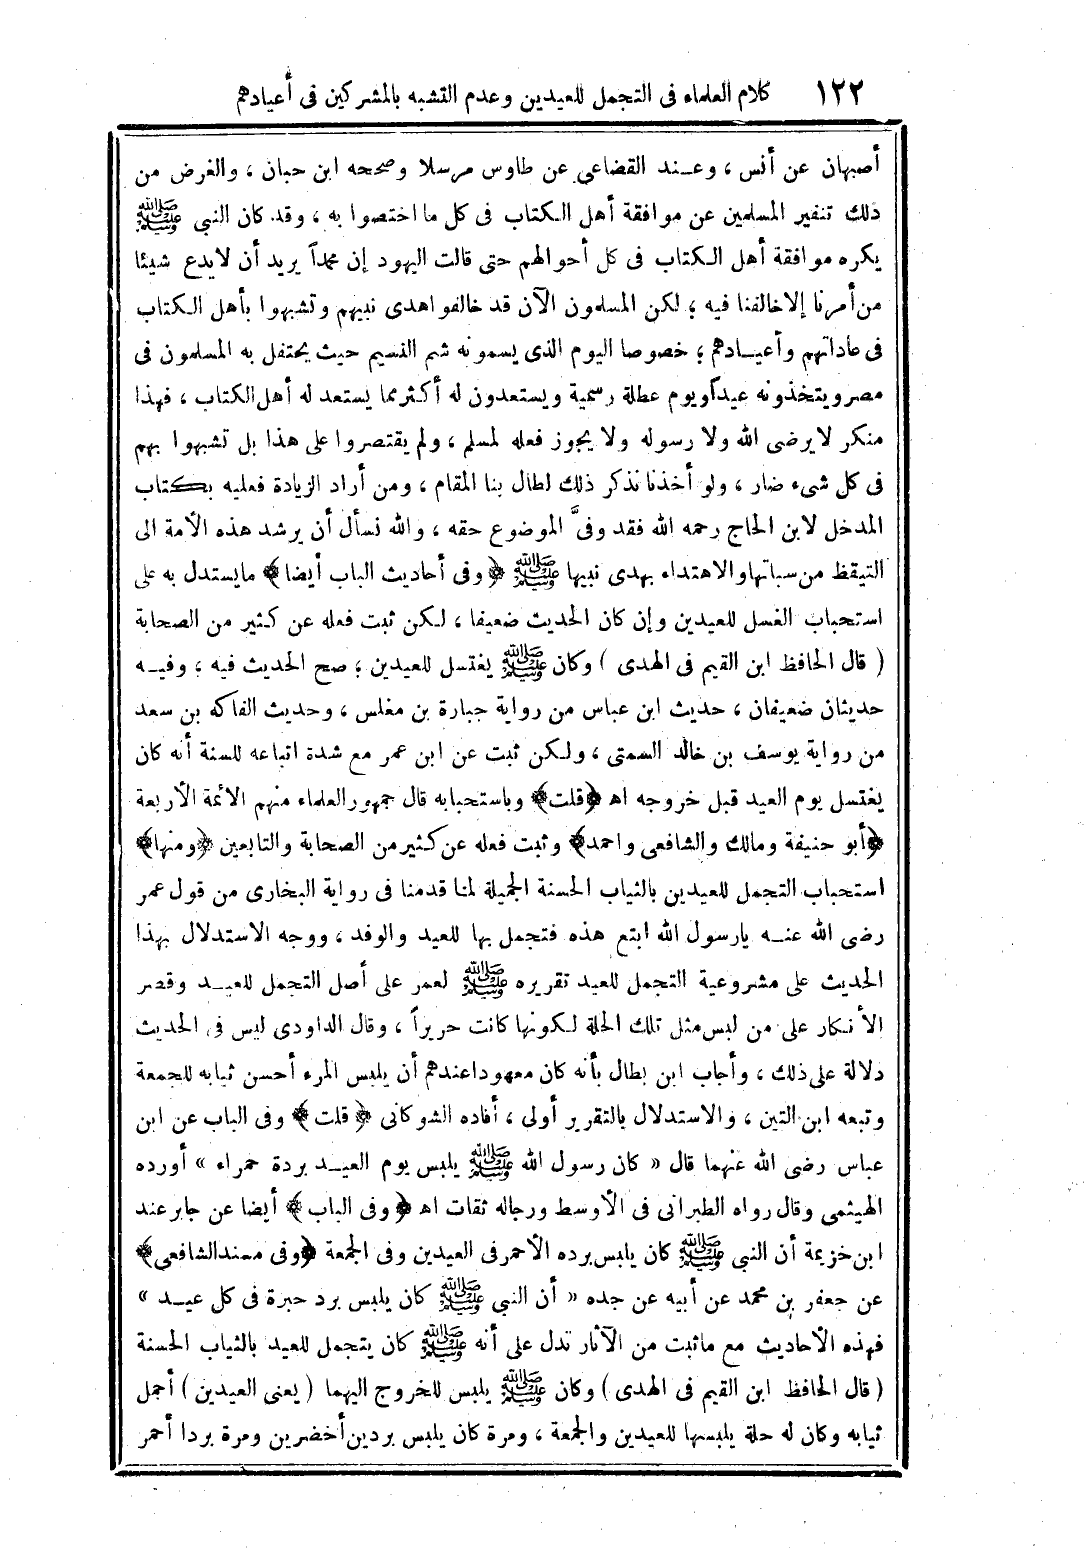 ١٢٢ كلام العلماء فى التجمل للعيدين وعدم التشبه بالمشركين فى أعيادهم
أصبهان عن أنس ، وعند القضاعى عن طاوس مرسلا وصححه ابن حبان ، والغرض من
ذلك تنفير المسلمين عن موافقة أهل الكتاب فى كل ما اختصوا به ، وقد كان النبى ﷺ
يكره موافقة أهل الكتاب فى كل أحوالهم حتى قالت اليهود إن محمداً يريد أن لا يدع شيئا
من أمرنا إلا خالفنا فيه ؛ لكن المسلمون الآن قد خالفوا هدى نبيهم وتشبهوا بأهل الكتاب
فى عاداتهم وأعيادهم ؛ خصوصا اليوم الذى يسمونه شم النسيم حيث يحتفل به المسلمون فى
مصر ويتخذونه عيداً ويوم عطلة رسمية ويستعدون له أكثر مما يستعد له أهل الكتاب ، فهذا
منكر لا يرضى الله ولا رسوله ولا يجوز فعله لمسلم ، ولم يقتصروا على هذا بل تشبهوا بهم
فى كل شىء ضار ، ولو أخذنا نذكر ذلك لطال بنا المقام ، ومن أراد الزيادة فعليه بكتاب
المدخل لابن الحاج رحمه الله فقد وفىَّ الموضوع حقه ، والله نسأل أن يرشد هذه الأمة الى
التيقظ من سباتها والاهتداء بهدى نبيها ﷺ ﴿وفى أحاديث الباب أيضا﴾ ما يستدل به على
استحباب الغسل للعيدين وإن كان الحديث ضعيفا ، لكن ثبت فعله عن كثير من الصحابة
( قال الحافظ ابن القيم فى الهدى ) وكان ﷺ يغتسل للعيدين ؛ صح الحديث فيه ؛ وفيه
حديثان ضعيفان ، حديث ابن عباس من رواية جبارة بن مغلس ، وحديث الفاكه بن سعد
من رواية يوسف بن خالد السمتى ، ولكن ثبت عن ابن عمر مع شدة اتباعه للسنة أنه كان
يغتسل يوم العيد قبل خروجه اه ﴿قلت﴾ وباستحبابه قال جمهور العلماء منهم الائمة الأربعة
﴿أبو حنيفة ومالك والشافعى واحمد﴾ وثبت فعله عن كثير من الصحابة والتابعين ﴿ومنها﴾
استحباب التجمل للعيدين بالثياب الحسنة الجميلة لما قدمنا فى رواية البخارى من قول عمر
رضى الله عنه يارسول الله ابتع هذه فتجمل بها للعيد والوفد ، ووجه الاستدلال بهذا
الحديث على مشروعية التجمل للعيد تقريره ﷺ لعمر على أصل التجمل للعيد وقصر
الأنكار على من لبس مثل تلك الحلة لكونها كانت حريراً ، وقال الداودى ليس فى الحديث
دلالة على ذلك ، وأجاب ابن بطال بأنه كان معهودا عندهم أن يلبس المرء أحسن ثيابه للجمعة
وتبعه ابن التين ، والاستدلال بالتقرير أولى ، أفاده الشوكانى ﴿ قلت ﴾ وفى الباب عن ابن
عباس رضى الله عنهما قال « كان رسول الله ﷺ يلبس يوم العيد بردة حمراء » أورده
الهيثمى وقال رواه الطبرانى فى الأوسط ورجاله ثقات اه ﴿وفى الباب﴾ أيضا عن جابر عند
ابن خزيمة أن النبى ﷺ كان يلبس برده الأحمر فى العيدين وفى الجمعة ﴿وفى مسند الشافعى﴾
عن جعفر بن محمد عن أبيه عن جده « أن النبى ﷺ كان يلبس برد حبرة فى كل عيد »
فهذه الأحاديث مع ماثبت من الآثار تدل على أنه ﷺ كان يتجمل للعيد بالثياب الحسنة
( قال الحافظ ابن القيم فى الهدى ) وكان ﷺ يلبس للخروج اليهما ( يعنى العيدين ) أجمل
ثيابه وكان له حلة يلبسها للعيدين والجمعة ، ومرة كان يلبس بردين أخضرين ومرة بردا أحمر